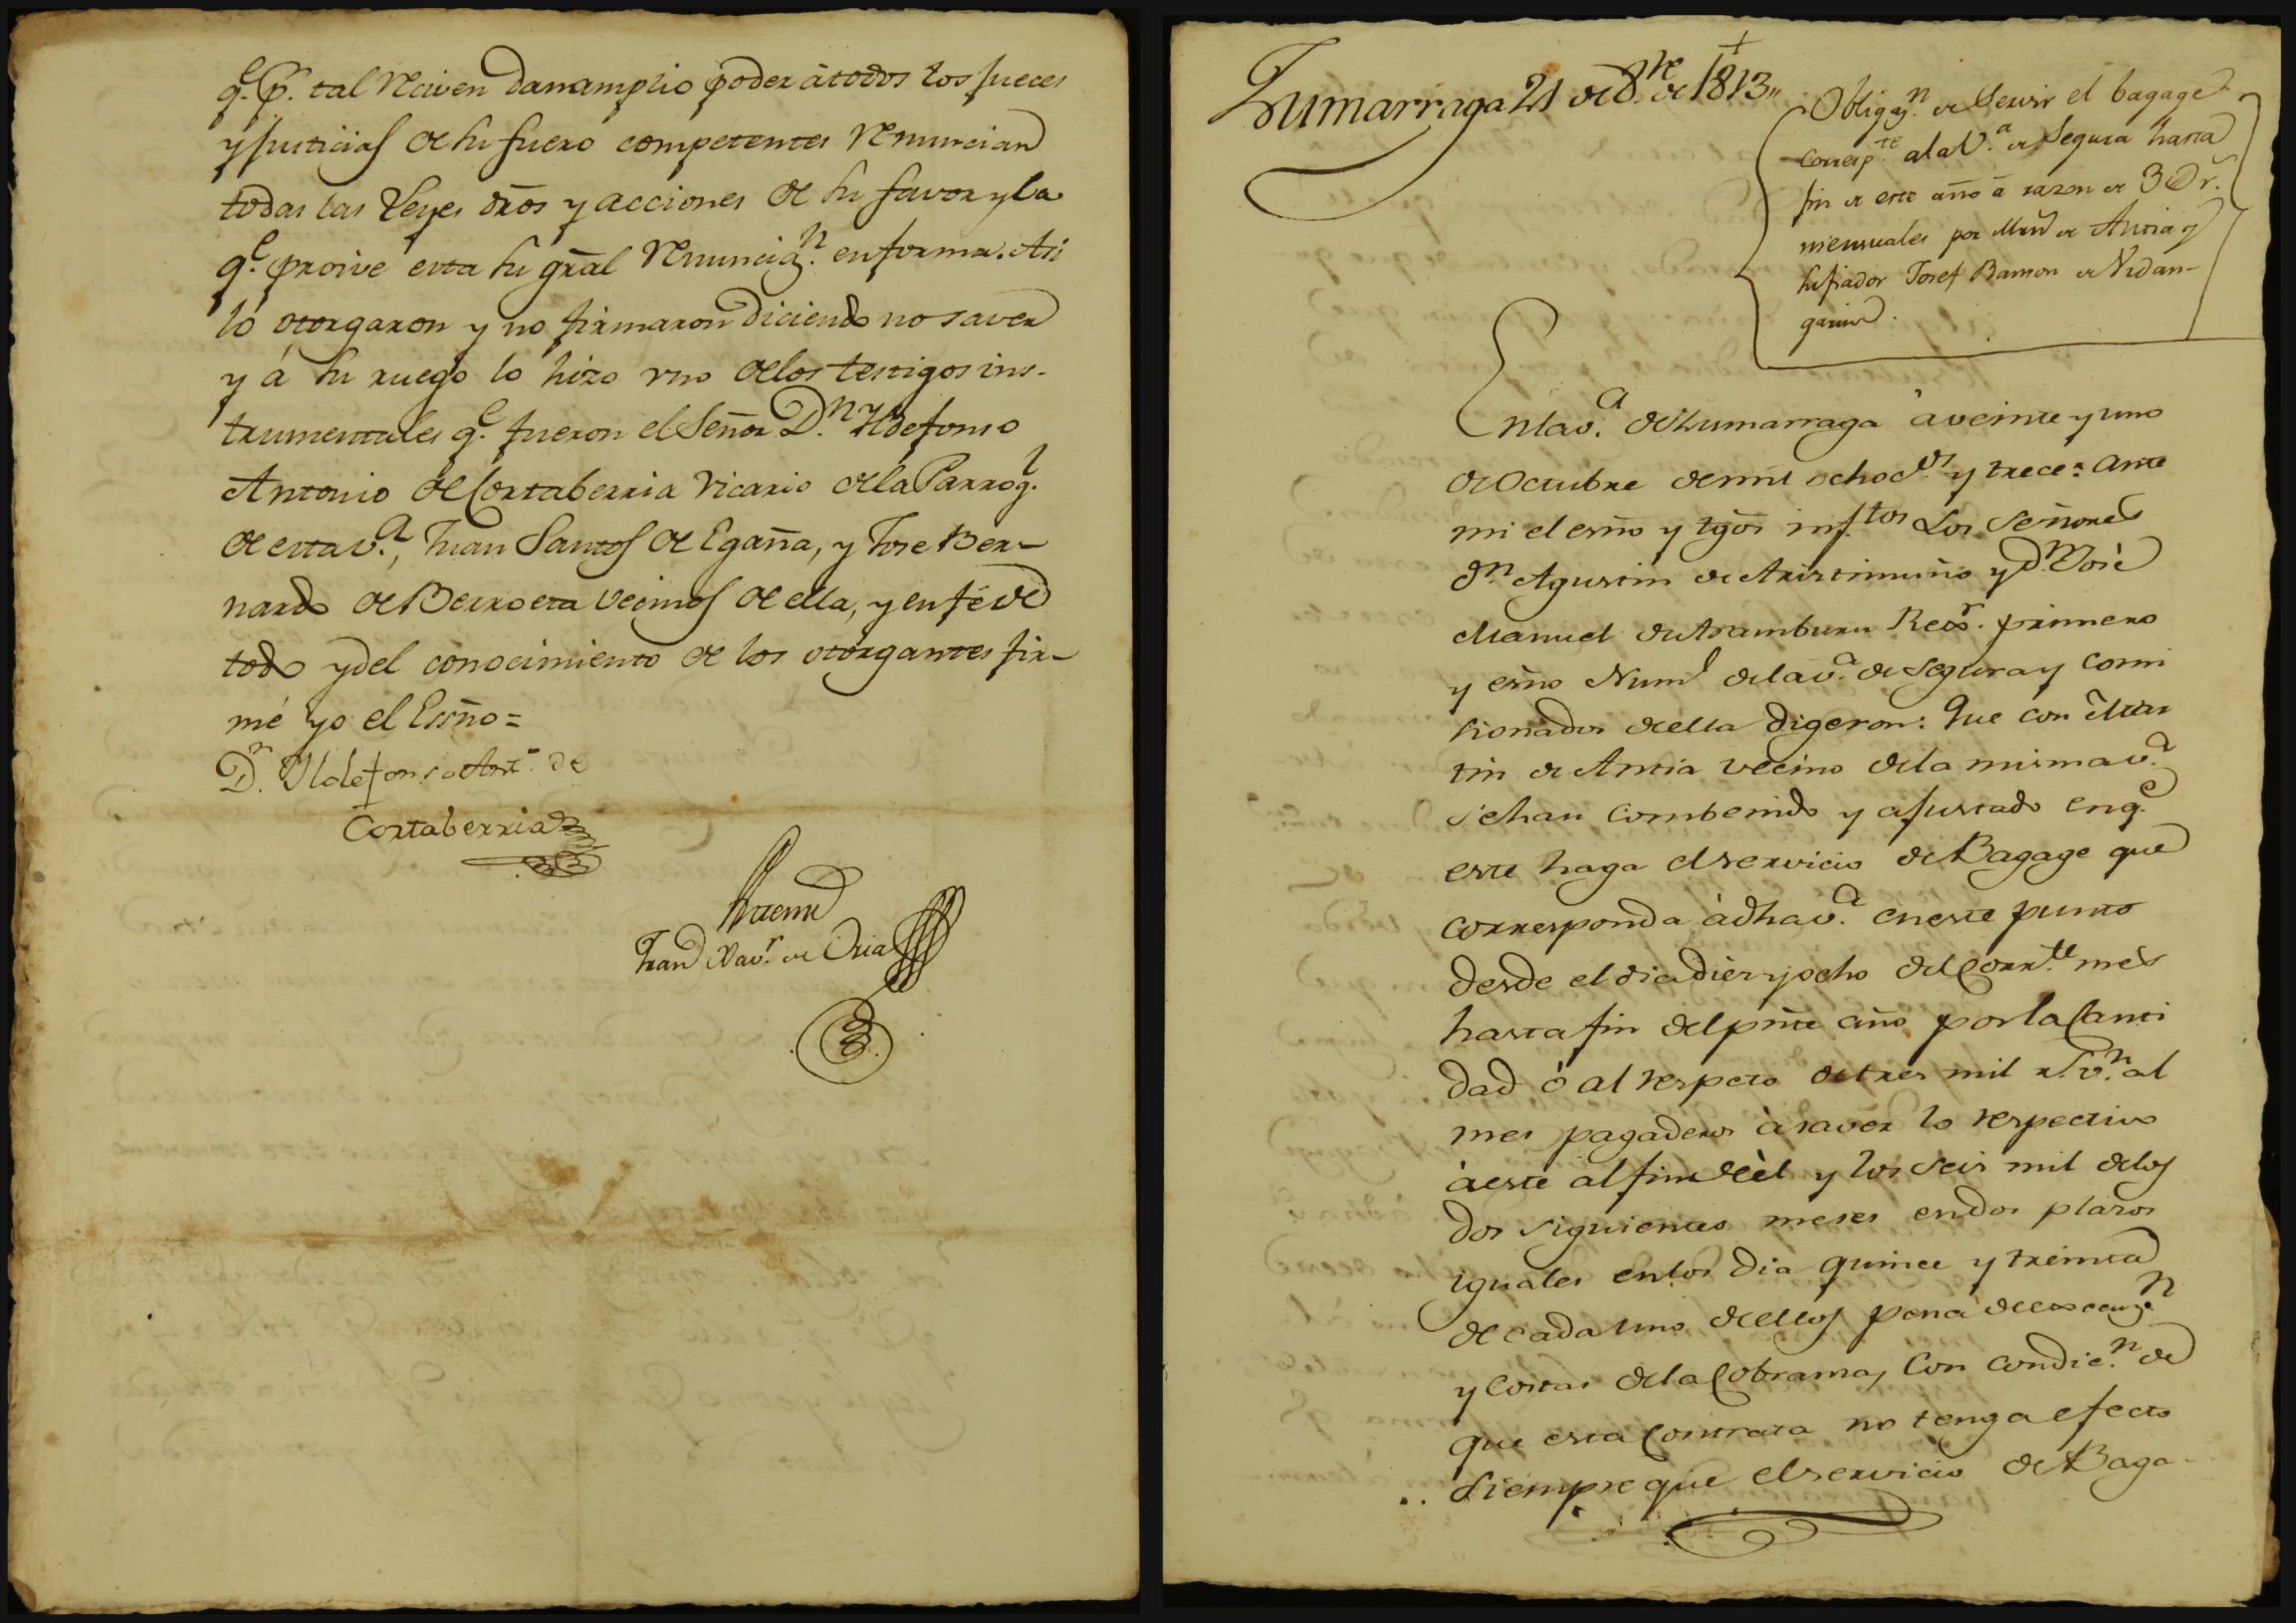 q.e p.r tal reciven dan amplio poder à todos los jueces
y justicias de su fuero competentes renuncian
todas las Leyes dr̃os y acciones de su favor y la
q.e proive esta su gr̃al renunciaz.n en forma. Asi
lo otorgaron y no firmaron diciendo no saver
y á su ruego lo hizo vno de los testigos ins-
trumentales q.e fueron el Señor D.n Yldefonso
Antonio de Cortaberria Vicario de la Parroq.l
de esta v.a, Juan Santos de Egaña, y Jose Ber-
nardo de Berroeta vecinos de ella, y en fé de
todo y del conocimiento de los otorgantes fir-
mé yo el Essño=
D.n Yldefonso Ant.o de
Cortaberria
Antemi
Fran.co Xav.r de Oria
+
Zumarraga 21 de 8.re de 1813,,
Obligaz.n de Servir el bagage
corresp.te a la V.a de Segura hasta
fin de este año á razon de 3D r.s
mensuales por Mrn de Antia y
su fiador Josef Ramon de Vidan-
garin.
En la v.a de Zumarraga à veinte y uno
de Octubre de mil ochoc.os y trece: ante
mi el esño y tgõs inf.tos Los Señores
d.n Agustin de Aristimuño y d.n José
Manuel de Aramburu Rexor. primero
y esño Num.l de la v.a de Segura y comi
sionados de ella digeron: Que con Mar
tin de Antia vecino de la misma v.a
se han combenido y ajustado en q.e
este haga el servicio de Bagage que
corresponda à dha v.a en este punto
desde el dia diez y ocho del Corr.te mes
hasta fin del pñte año por la Canti
dad ó al respeto de tres mil r.s v.n al
mes pagaderos à saver lo respectivo
à este al fin de èl y los seis mil de los
dos siguientes meses en dos plazos
iguales en los dia quince y treinta
de cada uno de ellos pena de execuz.n
y Costas de la Cobranza, Con condic.n de
que esta Contrata no tenga efecto
siempre que el servicio de Baga-